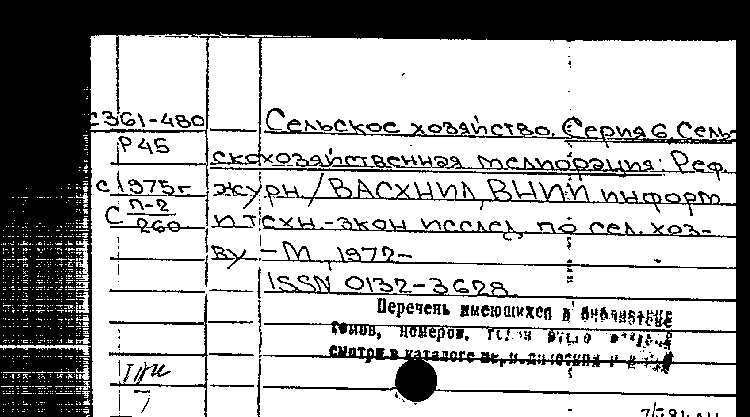 С361-480
Р45
с 1975г
С П-2/260
Сельское хозяйство. Серия 6. Сель-
скохозяйственная мелиорация: Реф.
журн./ВАСХНИЛ, ВНИИ информ.
и техн.-экон исслед. по сел. хоз-
ву – М, 1972–
ISSN 0132-3628
Перечень имеющихся в библиотеке
томов, номеров,
смотри в каталоге